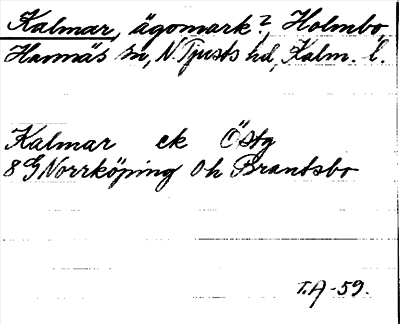 Kalmar, ägomark? Holmbo
Hannäs sn, N Tjusts hd, Kalm. l.
Kalmar ek Östg
8 G Norrköping Oh Brantsbo
T.A -59.